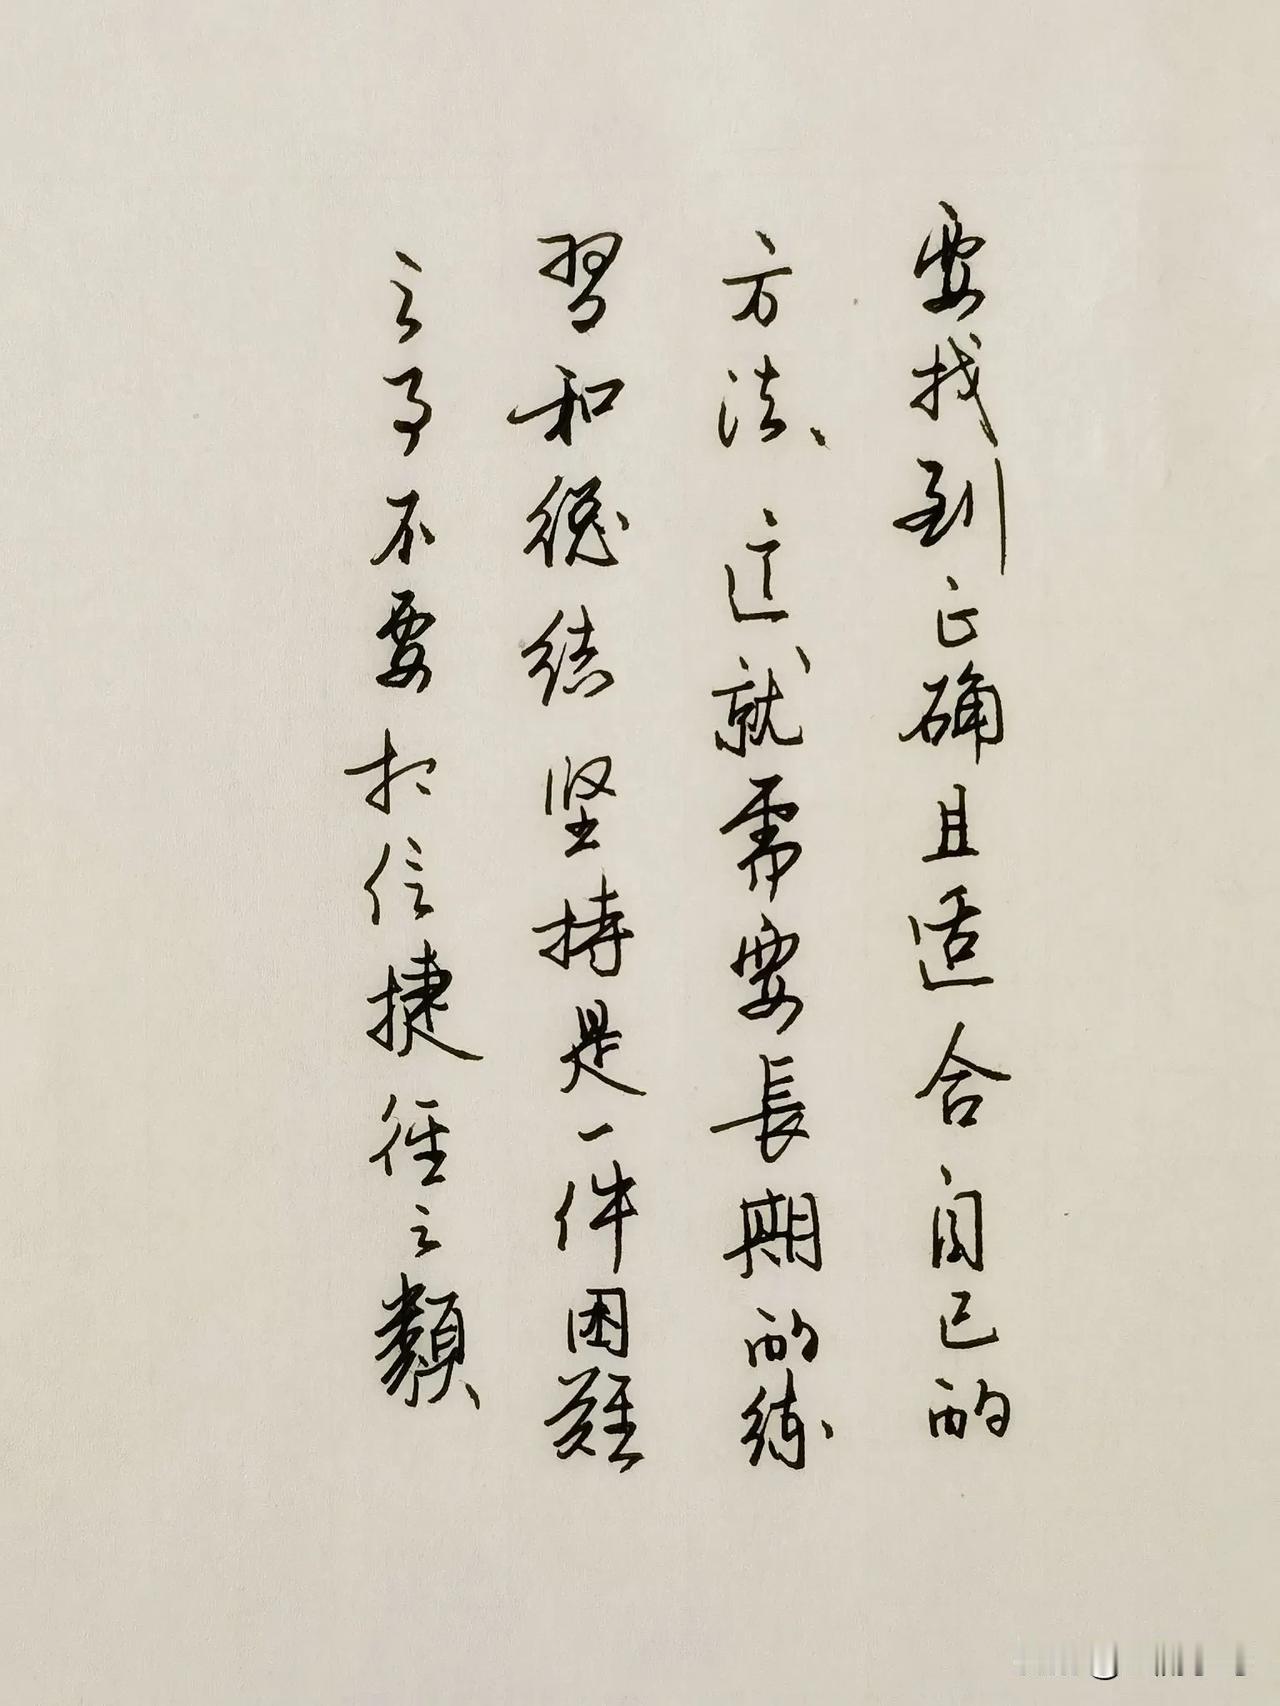 要找到正确且适合自己的
方法、这就需要長期的練
習和總结坚持是一件困難
之事不要相信捷径之類、